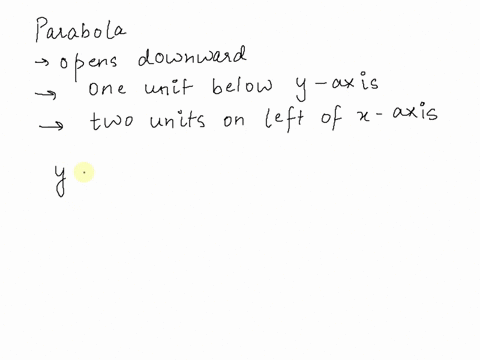 Parabola
→ opens downward
→ one unit below y-axis
→ two units on left of x-axis
y